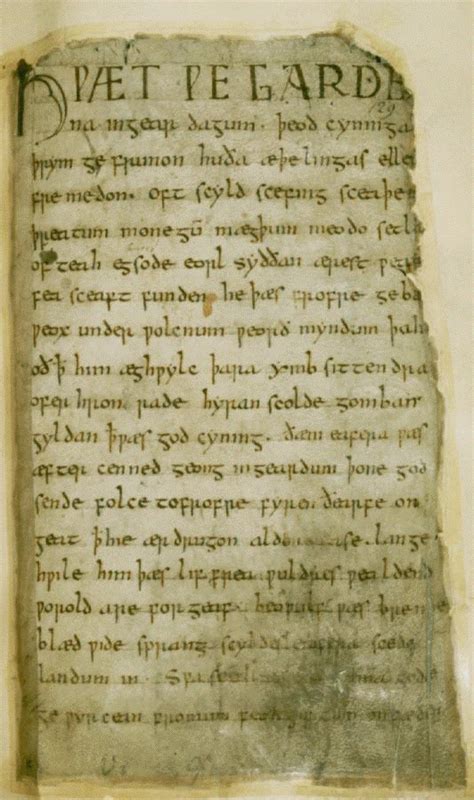 HǷÆT ǷE GARDE
129
na ingear dagum . þeod cyninga
þrym ge frunon huða æþelingas elle
fre medon. oft scyld scefing sceaþe
þreatum monegū mægþum meodo setla
of teah egsode eorl syððan ærest ƿear
fea sceaft funden he þæs frofre geba
ƿeox under ƿolcnum ƿeorð myndum þah
oð ꝥ him æghƿylc þara ymb sittendra
ofer hron rade hyran scolde gomban
gyldan ꝥ ƿæs god cyning. ðæm eafera ƿæs
æfter cenned geong ingeardum þone god
sende folce tofrofre fyren ðearfe on
geat ꝥ hie ær drugon aldor ase. lange
hƿile him þæs lif frea ƿuldres ƿealdend
ƿorold are for geaf. beoƿulf ƿæs breme
blæd ƿide sprang scyldes eafera scede
landum in. Sƿa sceal guma gode
ge ƿyrcean fromum feoh giftum on fæder